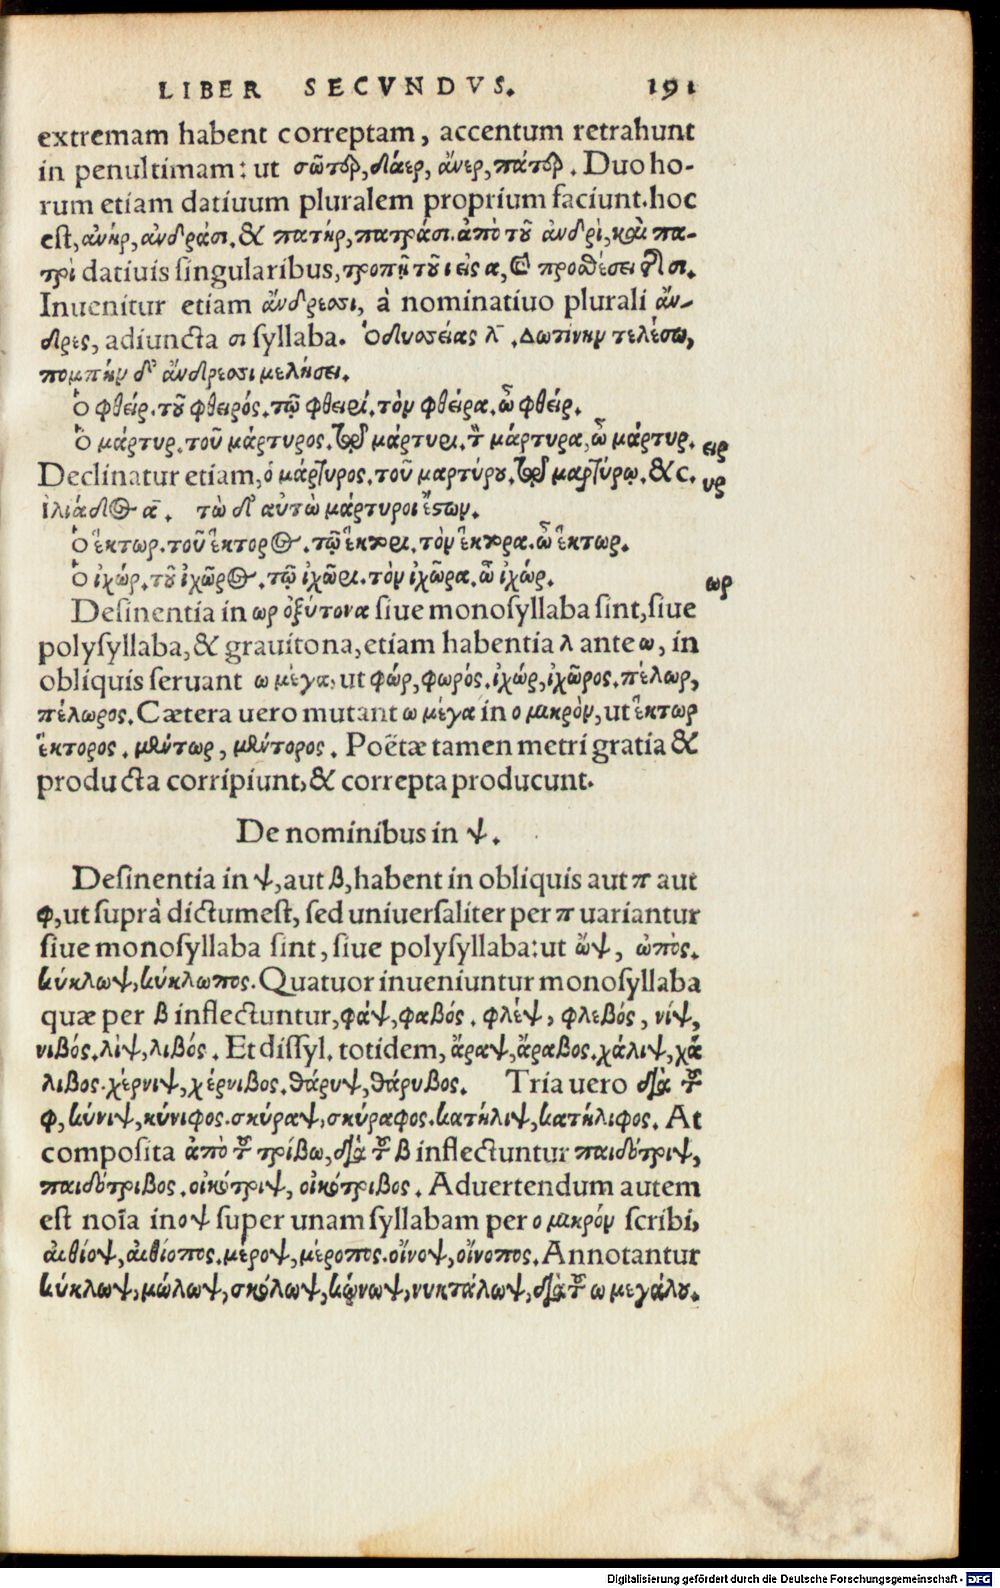 LIBER SECVNDVS. 191
extremam habent correptam, accentum retrahunt
in penultimam: ut σῶτερ, δάερ, ἄνερ, πάτερ. Duo ho-
rum etiam datiuum pluralem proprium faciunt. hoc
est, ἀνήρ, ἀνδράσι. & πατήρ, πατράσι. ἀπὸ τοῦ ἀνδρὶ, καὶ πα-
τρὶ datiuis singularibus, τροπῇ τοῦ ι εἰς α, & προσθέσει τῆς σι.
Inuenitur etiam ἄνδρεσσι, à nominatiuo plurali ἄν-
δρες, adiuncta σι syllaba. Ὀδυσσείας λ̄. Δωτίνην τελέσω,
πομπὴν δ' ἄνδρεσσι μελήσει.
Ὁ φθείρ. τοῦ φθειρός. τῷ φθειρί. τὸν φθεῖρα. ὦ φθείρ.
Ὁ μάρτυρ. τοῦ μάρτυρος. τῷ μάρτυρι. τὸν μάρτυρα, ὦ μάρτυρ. ειρ
Declinatur etiam, ὁ μάρτυρος. τοῦ μαρτύρου. τῷ μαρτύρῳ. & c. υρ
Ἰλιάδος ᾱ. τὼ δ' αὐτὼ μάρτυροι ἔστων.
Ὁ ἕκτωρ. τοῦ ἕκτορος. τῷ ἕκτορι. τὸν ἕκτορα. ὦ ἕκτωρ.
Ὁ ἰχώρ. τοῦ ἰχῶρος. τῷ ἰχῶρι. τὸν ἰχῶρα. ὦ ἰχώρ. ωρ
Desinentia in ωρ ὀξύτονα siue monosyllaba sint, siue
polysyllaba, & grauitona, etiam habentia λ ante ω, in
obliquis seruant ω μέγα, ut φώρ, φωρός. ἰχώρ, ἰχῶρος. πέλωρ,
πέλωρος. Cætera uero mutant ω μέγα in ο μικρὸν, ut ἕκτωρ
ἕκτορος. μέντωρ, μέντορος. Poëtæ tamen metri gratia &
producta corripiunt, & correpta producunt.
De nominibus in ψ.
Desinentia in ψ, aut β, habent in obliquis aut π aut
φ, ut suprà dictum est, sed uniuersaliter per π uariantur
siue monosyllaba sint, siue polysyllaba: ut ὤψ, ὠπὸς.
κύκλωψ, κύκλωπος. Quatuor inueniuntur monosyllaba
quæ per β inflectuntur, φάψ, φαβός. φλὲψ, φλεβός, νίψ,
νιβός. λὶψ, λιβός. Et dissyl. totidem, ἄραψ, ἄραβος. χάλιψ, χά
λιβος. χέρνιψ, χέρνιβος. θάρυψ, θάρυβος. Tria uero διὰ τοῦ
φ, κύνιψ, κύνιφος. σκύραψ, σκύραφος. κατήλιψ, κατήλιφος. At
composita ἀπὸ τοῦ τρίβω, διὰ τοῦ β inflectuntur παιδότριψ,
παιδότριβος. οἰκότριψ, οἰκότριβος. Aduertendum autem
est noīa in οψ super unam syllabam per ο μικρόν scribi,
αἰθίοψ, αἰθίοπος. μέροψ, μέροπος. οἴνοψ, οἴνοπος. Annotantur
κύκλωψ, μώλωψ, σκόλωψ, κώνωψ, νυκτάλωψ, διὰ τοῦ ω μεγάλου.
Digitalisierung gefördert durch die Deutsche Forschungsgemeinschaft - DFG